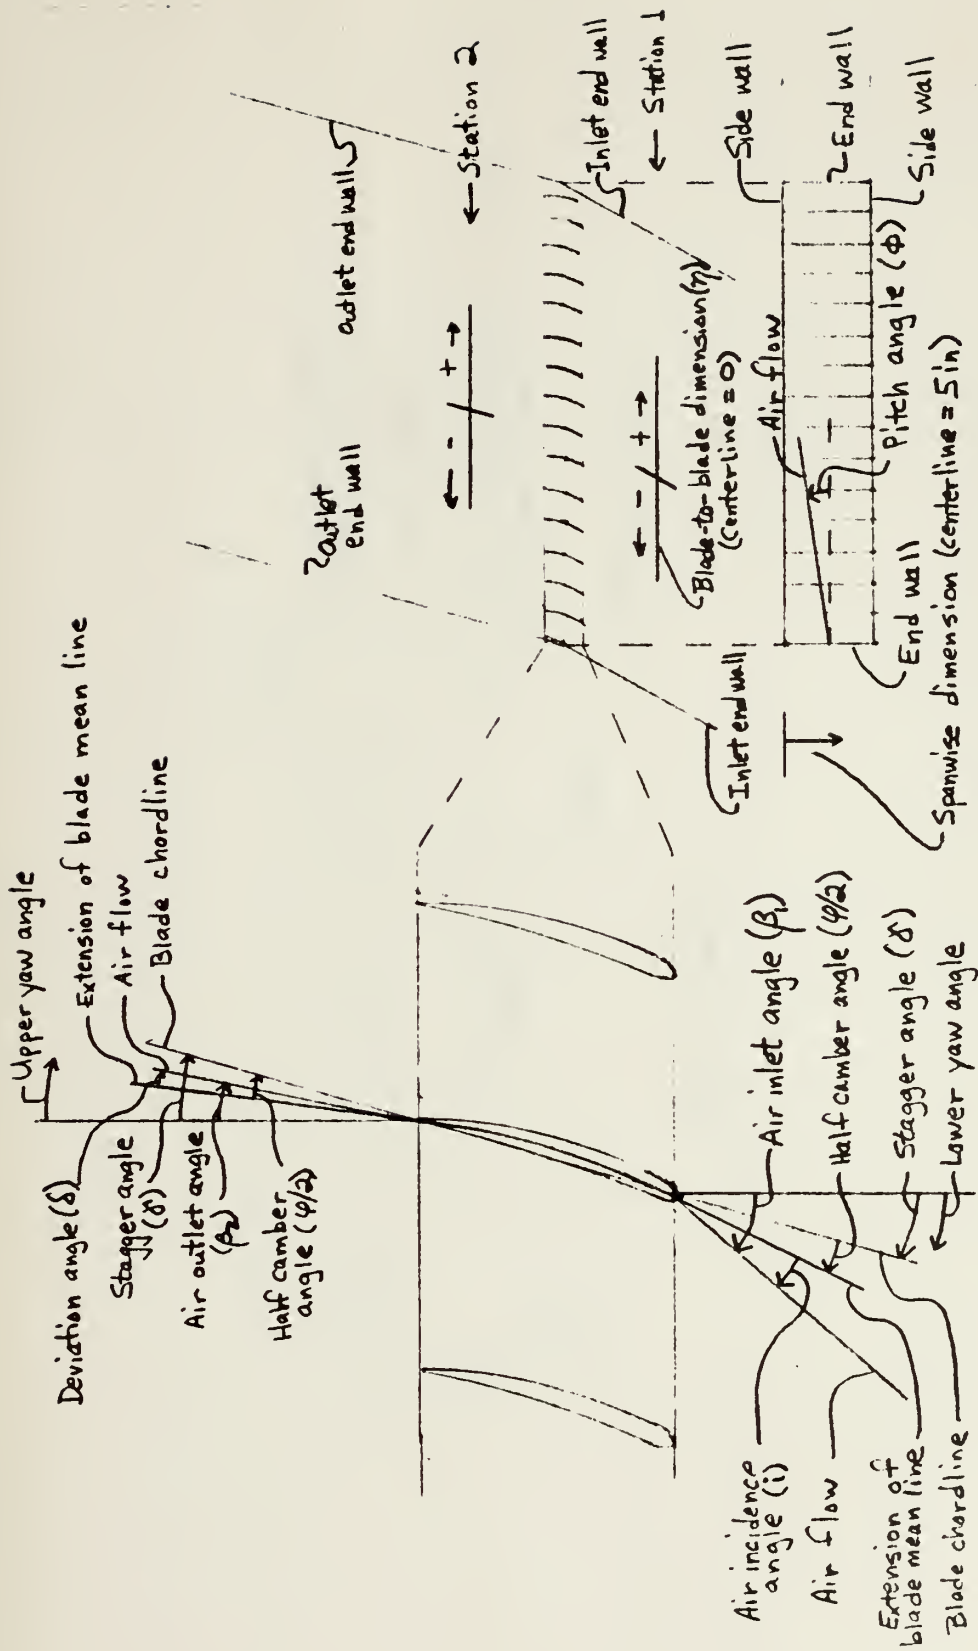 Upper yaw angle
Extension of blade mean line
Air flow
Blade chordline
Deviation angle (δ)
Stagger angle
(γ)
Air outlet angle
(β2)
Half camber
angle (φ/2)
Air inlet angle (β1)
Half camber angle (φ/2)
Stagger angle (γ)
Lower yaw angle
Air incidence
angle (i)
Air flow
Extension of
blade mean line
Blade chordline
Outlet
end wall
outlet end wall
← Station 2
← - / + →
Inlet end wall
← Station 1
← - / + →
Blade-to-blade dimension (η)
(Centerline = 0)
Inlet end wall
Side wall
Air flow
End wall
Side wall
Pitch angle (Φ)
End wall
Spanwise dimension (centerline = 5in)